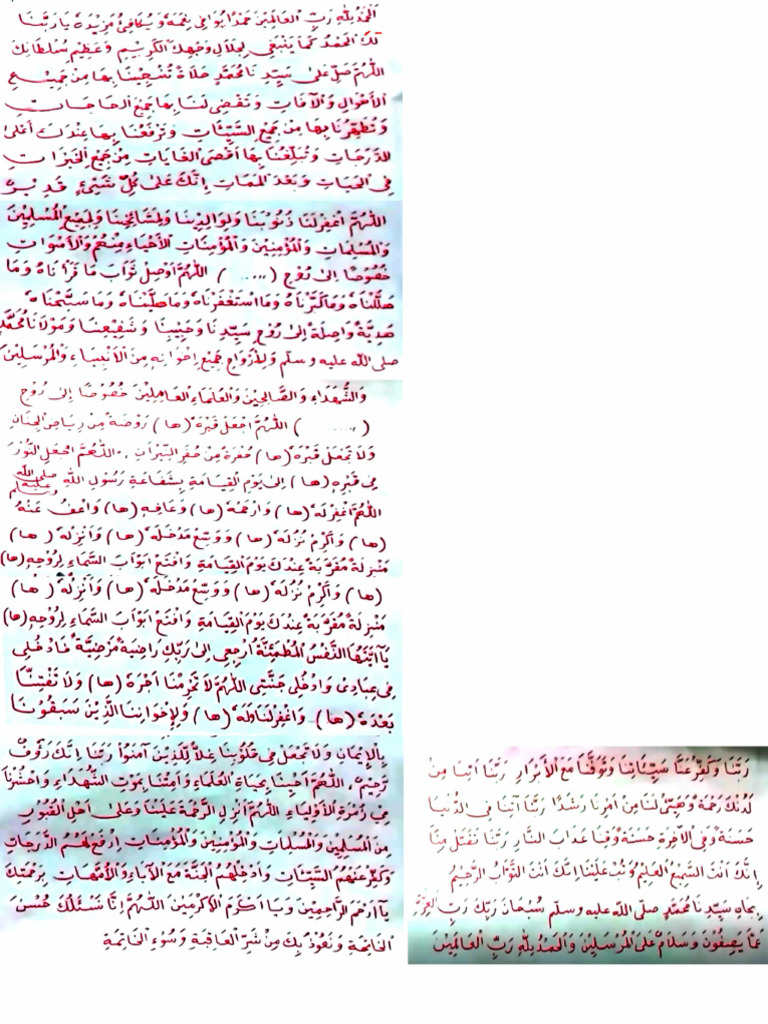 اَلْحَمْدُ لِلّٰهِ رَبِّ الْعَالَمِيْنَ حَمْدًا يُوَافِي نِعَمَهٗ وَيُكَافِئُ مَزِيْدَهٗ يَا رَبَّنَا
لَكَ الْحَمْدُ كَمَا يَنْبَغِي لِجَلَالِ وَجْهِكَ الْكَرِيْمِ وَعَظِيْمِ سُلْطَانِكَ
اَللّٰهُمَّ صَلِّ عَلٰى سَيِّدِنَا مُحَمَّدٍ صَلَاةً تُنْجِيْنَا بِهَا مِنْ جَمِيْعِ
الْأَهْوَالِ وَالْآفَاتِ وَتَقْضِى لَنَا بِهَا جَمِيْعَ الْحَاجَاتِ
وَتُطَهِّرُنَا بِهَا مِنْ جَمِيْعِ السَّيِّئَاتِ وَتَرْفَعُنَا بِهَا عِنْدَكَ أَعْلَى
الدَّرَجَاتِ وَتُبَلِّغُنَا بِهَا أَقْصَى الْغَايَاتِ مِنْ جَمِيْعِ الْخَيْرَاتِ
فِي الْحَيَاتِ وَبَعْدَ الْمَمَاتِ اِنَّكَ عَلٰى كُلِّ شَيْئٍ قَدِيْرٌ
اَللّٰهُمَّ اغْفِرْلَنَا ذُنُوْبَنَا وَلِوَالِدِيْنَا وَلِمَشَائِخِنَا وَلِجَمِيْعِ الْمُسْلِمِيْنَ
وَالْمُسْلِمَاتِ وَالْمُؤْمِنِيْنَ وَالْمُؤْمِنَاتِ الْأَحْيَاءِ مِنْهُمْ وَالْأَمْوَاتِ
خُصُوْصًا اِلٰى رُوْحِ (.....) اَللّٰهُمَّ اَوْصِلْ ثَوَابَ مَا قَرَأْنَاهُ وَمَا
هَلَّلْنَاهُ وَمَا كَبَّرْنَاهُ وَمَا اسْتَغْفَرْنَاهُ وَمَا صَلَّيْنَاهُ وَمَا سَبَّحْنَاهُ
هَدِيَّةً وَاصِلَةً اِلٰى رُوْحِ سَيِّدِنَا وَحَبِيْبِنَا وَشَفِيْعِنَا وَمَوْلَانَا مُحَمَّدٍ
صلى الله عليه وسلم وَلِأَرْوَاحِ جَمِيْعِ اِخْوَانِهِ مِنَ الْأَنْبِيَاءِ وَالْمُرْسَلِيْنَ
وَالشُّهَدَاءِ وَالصَّالِحِيْنَ وَالْعُلَمَاءِ الْعَامِلِيْنَ خُصُوْصًا اِلٰى رُوْحِ
(.....) اَللّٰهُمَّ اجْعَلْ قَبْرَهٗ (ها) رَوْضَةً مِنْ رِيَاضِ الْجِنَانِ
وَلَا تَجْعَلْ قَبْرَهٗ (ها) حُفْرَةً مِنْ حُفَرِ النِّيْرَانِ. اَللّٰهُمَّ اجْعَلِ النُّوْرَ
فِي قَبْرِهِ (ها) اِلٰى يَوْمِ الْقِيَامَةِ بِشَفَاعَةِ رَسُوْلِ اللّٰهِ صلى الله عليه وسلم
اَللّٰهُمَّ اغْفِرْ لَهٗ (ها) وَارْحَمْهُ (ها) وَعَافِهِ (ها) وَاعْفُ عَنْهُ
(ها) وَأَكْرِمْ نُزُلَهٗ (ها) وَوَسِّعْ مَدْخَلَهٗ (ها) وَأَنْزِلْهُ (ها)
مَنْزِلَةً مُقَرَّبَةً عِنْدَكَ يَوْمَ الْقِيَامَةِ وَافْتَحْ اَبْوَابَ السَّمَاءِ لِرُوْحِهِ (ها)
(ها) وَأَكْرِمْ نُزُلَهٗ (ها) وَوَسِّعْ مَدْخَلَهٗ (ها) وَأَنْزِلْهُ (ها)
مَنْزِلَةً مُقَرَّبَةً عِنْدَكَ يَوْمَ الْقِيَامَةِ وَافْتَحْ اَبْوَابَ السَّمَاءِ لِرُوْحِهِ (ها)
يَا أَيَّتُهَا النَّفْسُ الْمُطْمَئِنَّةُ ارْجِعِي اِلٰى رَبِّكِ رَاضِيَةً مَرْضِيَّةً فَادْخُلِى
فِي عِبَادِى وَادْخُلِى جَنَّتِى اَللّٰهُمَّ لَا تَحْرِمْنَا اَجْرَهٗ (ها) وَلَا تَفْتِنَّا
بَعْدَهٗ (ها) وَاغْفِرْ لَنَا وَلَهٗ (ها) وَلِإِخْوَانِنَا الَّذِيْنَ سَبَقُوْنَا
بِالْإِيْمَانِ وَلَا تَجْعَلْ فِي قُلُوْبِنَا غِلًّا لِلَّذِيْنَ آمَنُوْا رَبَّنَا اِنَّكَ رَؤُوْفٌ
رَحِيْمٌ. اَللّٰهُمَّ أَحْيِنَا بِحَيَاةِ الْعُلَمَاءِ وَأَمِتْنَا بِمَوْتِ الشُّهَدَاءِ وَاحْشُرْنَا
فِي زُمْرَةِ الْأَوْلِيَاءِ اَللّٰهُمَّ أَنْزِلِ الرَّحْمَةَ عَلَيْنَا وَعَلٰى اَهْلِ الْقُبُوْرِ
مِنَ الْمُسْلِمِيْنَ وَالْمُسْلِمَاتِ وَالْمُؤْمِنِيْنَ وَالْمُؤْمِنَاتِ اِرْفَعْ لَهُمُ الدَّرَجَاتِ
وَكَفِّرْ عَنْهُمُ السَّيِّئَاتِ وَادْخِلْهُمُ الْجَنَّةَ مَعَ الْآبَاءِ وَالْأُمَّهَاتِ بِرَحْمَتِكَ
يَا أَرْحَمَ الرَّاحِمِيْنَ وَيَا أَكْرَمَ الْأَكْرَمِيْنَ اَللّٰهُمَّ اِنَّا نَسْئَلُكَ حُسْنَ
الْخَاتِمَةِ وَنَعُوْذُ بِكَ مِنْ شَرِّ الْعَاقِبَةِ وَسُوْءِ الْخَاتِمَةِ
رَبَّنَا وَكَفِّرْ عَنَّا سَيِّئَاتِنَا وَتَوَفَّنَا مَعَ الْأَبْرَارِ رَبَّنَا آتِنَا مِنْ
لَدُنْكَ رَحْمَةً وَهَيِّئْ لَنَا مِنْ اَمْرِنَا رَشَدًا رَبَّنَا آتِنَا فِي الدُّنْيَا
حَسَنَةً وَفِي الْآخِرَةِ حَسَنَةً وَقِنَا عَذَابَ النَّارِ رَبَّنَا تَقَبَّلْ مِنَّا
اِنَّكَ اَنْتَ السَّمِيْعُ الْعَلِيْمُ وَتُبْ عَلَيْنَا اِنَّكَ اَنْتَ التَّوَّابُ الرَّحِيْمُ
بِجَاهِ سَيِّدِنَا مُحَمَّدٍ صلى الله عليه وسلم سُبْحَانَ رَبِّكَ رَبِّ الْعِزَّةِ
عَمَّا يَصِفُوْنَ وَسَلَامٌ عَلَى الْمُرْسَلِيْنَ وَالْحَمْدُ لِلّٰهِ رَبِّ الْعَالَمِيْنَ